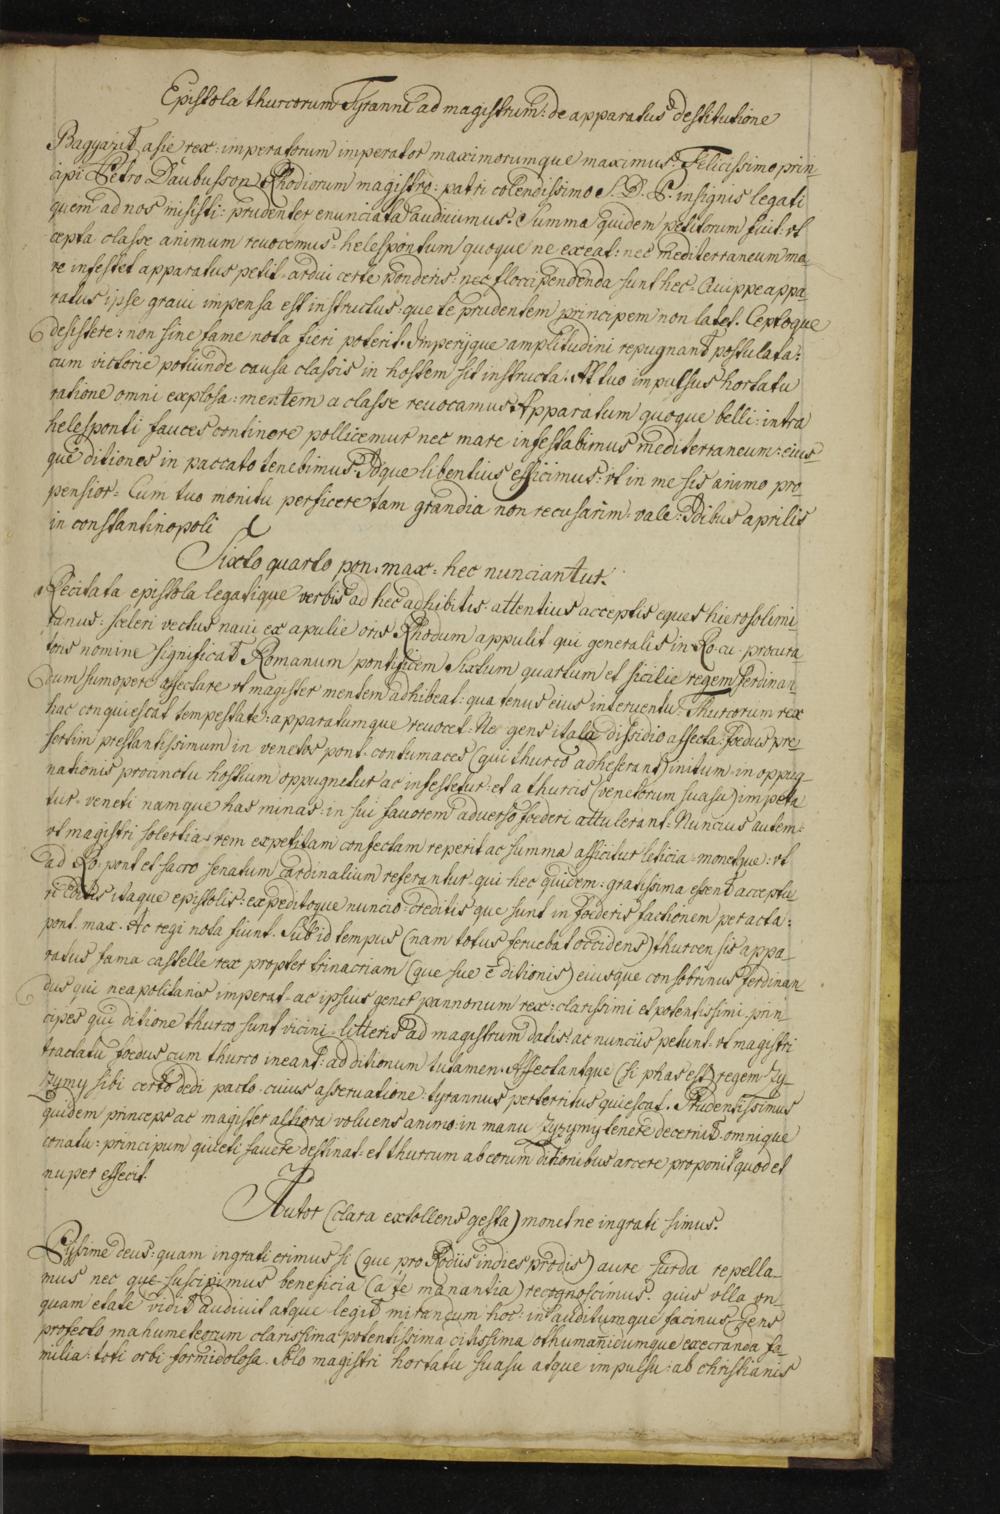 Epistola thurcorum Tyranni ad magistrum: de apparatus destitutione
Bagyazit asie rex: imperatorum imperator maximorumque maximus. Felicissimo prin
cipi Petro Daubusson Rhodiorum magistro: patri colendissimo S. D. P. insignis legati
quem ad nos misisti: prudenter enunciata audiuimus. Summa quidem petitorum fuit: vt
cepta classe animum reuocemus: helespontum quoque ne exeat: nec mediterraneum ma_
re infestet apparatus petit. ardui certe ponderis: nec floccipendenda sunt hec. Quippe appa_
ratus ipse graui impensa est instructus: que te prudentem principem non latet. Ceptoque
desistere: non sine fame nota fieri poterit. Imperijque amplitudini repugnant postulata:
cum victorie potiunde causa classis in hostem sit instructa. At tuo impulsus hortatu
ratione omni explosa: mentem a classe reuocamus. Apparatum quoque belli: intra
helesponti fauces continere pollicemur nec mare infestabimus mediterraneum: eius_
que ditiones in paccato tenebimus. Idque libentius efficimus: vt in me sis animo pro_
pensior. Cum tuo monitu perficere tam grandia non recusarim. vale. Idibus aprilis
in constantinopoli
Sixto quarto pon. max. hec nunciantur.
Recitata epistola legatique verbis ad hec adhibitis. attentius acceptis eques hierosolimi_
tanus: sceleri vectus naui ex apulie oris Rhodum appulit qui generalis in Ro. cu. procura
toris nomine significat Romanum pontificem Sixtum quartum et sicilie regem ferdinan_
dum summopere affectare vt magister mentem adhibeat: qua tenus eius interuentu. Thurcorum rex
hac conquiescat tempestate: apparatumque reuocet. Ne gens itala dissidio affecta: foedus pre_
sertim prestantissimum in venetos pont. contumaces (qui thurco adheserant) initum. in oppug_
nationis procinctu hostium oppugnetur ac infestetur: et a thurcis (venetorum suasu) impeta
tur. veneti namque has minas: in sui fauorem aduerso foederi attulerant. Nuncius autem.
vt magistri solertia: rem expetitam confectam reperit ac summa afficitur leticia. monetque: vt
ad Ro. pont et sacro senatum cardinalium referantur. qui hec quidem: gratissima essent acceptu
reditis itaque epistolis: expeditoque nuncio. creditis que sunt in foederis factionem peracta:
pont. max. Ac regi nota fiunt. Sub id tempus (nam totus feruebat occidens) thurcensis appa_
ratus fama castelle rex propter trinacriam (que sue ē ditionis) eiusque consobrinus ferdinan
dus qui neapolitanis imperat. ac ipsius gener pannonum rex: clarissimi et potentissimi prin_
cipes qui ditione thurco sunt vicini. litteris ad magistrum datis: ac nunciis petunt. vt magistri
tractatu foedus cum thurco ineant: ad ditionum tutamen. Affectantque (si phas est) regem zy_
zymy sibi certo dedi pacto. cuius asseruatione: tyrannus perterritus quiescat. Prudentissimus
quidem princeps ac magister altiora voluens animo: in manu zyzymy tenere decernit. omnique
conatu: principum quieti fauere destinat. et thurcum ab eorum ditionibus arcere proponit quod et
nuper effecit.
Autor (clara extollens gesta) monet ne ingrati simus.
Pijssime deus: quam ingrati erimus si (que pro Rodiis indies prodis) aure surda repella_
mus nec que suscipimus beneficia (a te manantia) recognoscimus. quis vlla vn_
quam etate vidit audiuit atque legit mirandum hoc: inauditumque facinus. Gens
profecto mahumeteorum clarissima: potentissima citissima othumanidumque execranda fa_
milia: toti orbi formidolosa. Solo magistri hortatu suasu atque impulsu: ab christianis